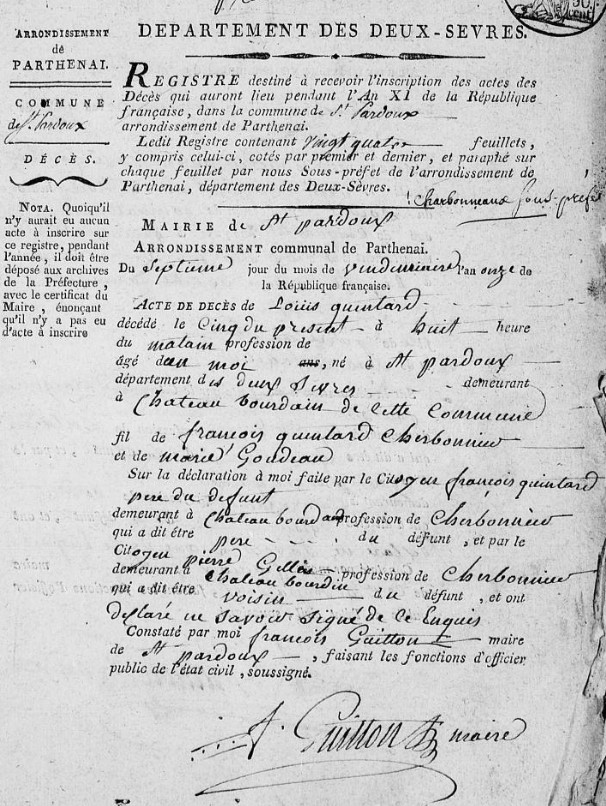 ARRONDISSEMENT
de
PARTHENAI.
COMMUNE
de St Pardoux
DÉCÈS.
NOTA. Quoiqu'il
n'y aurait eu aucun
acte à inscrire sur
ce registre, pendant
l'année, il doit être
déposé aux archives
de la Préfecture,
avec le certificat du
Maire, énonçant
qu'il n'y a pas eu
d'acte à inscrire
DEPARTEMENT DES DEUX-SEVRES.
REGISTRE destiné à recevoir l'inscription des actes des
Décès qui auront lieu pendant l'An XI de la République
française, dans la commune de St Pardoux
arrondissement de Parthenai.
Ledit Registre contenant vingt quatre feuillets,
y compris celui-ci, cotés par premier et dernier, et paraphé sur
chaque feuillet par nous Sous-préfet de l'arrondissement de
Parthenai, département des Deux-Sèvres.
Charbonneaux sous-préfet
MAIRIE de St pardoux
ARRONDISSEMENT communal de Parthenai.
Du Septieme jour du mois de vendemiaire l'an onze de
la République française.
ACTE DE DÉCÈS de Louis quintard
décédé le Cinq du present à huit heure
du matain profession de
âgé dun moi ans, né à St pardoux
département des deux Sevres demeurant
à Chateau bourdain de Cette Commune
fil de françois quintard Cherbonnier
et de marie Goudeau
Sur la déclaration à moi faite par le Citoyen françois quintard
pere du defunt
demeurant à Chateau bourdain profession de Cherbonnier
qui a dit être pere du défunt, et par le
Citoyen pierre Gellis
demeurant à Chateau bourdin profession de Cherbonnier
qui a dit être voisin du défunt, et ont
declaré ne savoir signé de Ce Enquis
Constaté par moi françois Guitton maire
de St pardoux, faisant les fonctions d'officier
public de l'état civil, soussigné.
f. Guitton maire